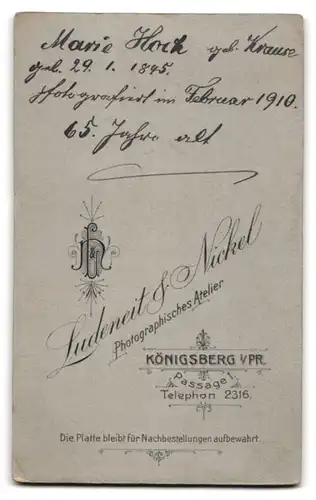 Marie Hock geb. Krause
geb. 29. 1. 1845.
photografiert im Februar 1910.
65. Jahre alt
L & N
Ludeneit & Nickel
Photographisches Atelier
KÖNIGSBERG I/PR.
Passage 1.
Telephon 2316.
Die Platte bleibt für Nachbestellungen aufbewahrt.